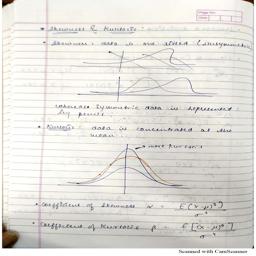 Page No.
Date
• Skewness & Kurtosis:
• Skewness: data is one sided (insymmetric
whereas symmetric data is represented
by
• Kurtosis: data is concentrated at the
mean.
→ more Kurtosis
• Coefficient of Skewness α = E(x-μ)³ / σ³
• Coefficient of Kurtosis β = E[(x-μ)⁴] / σ⁴
Scanned with CamScanner